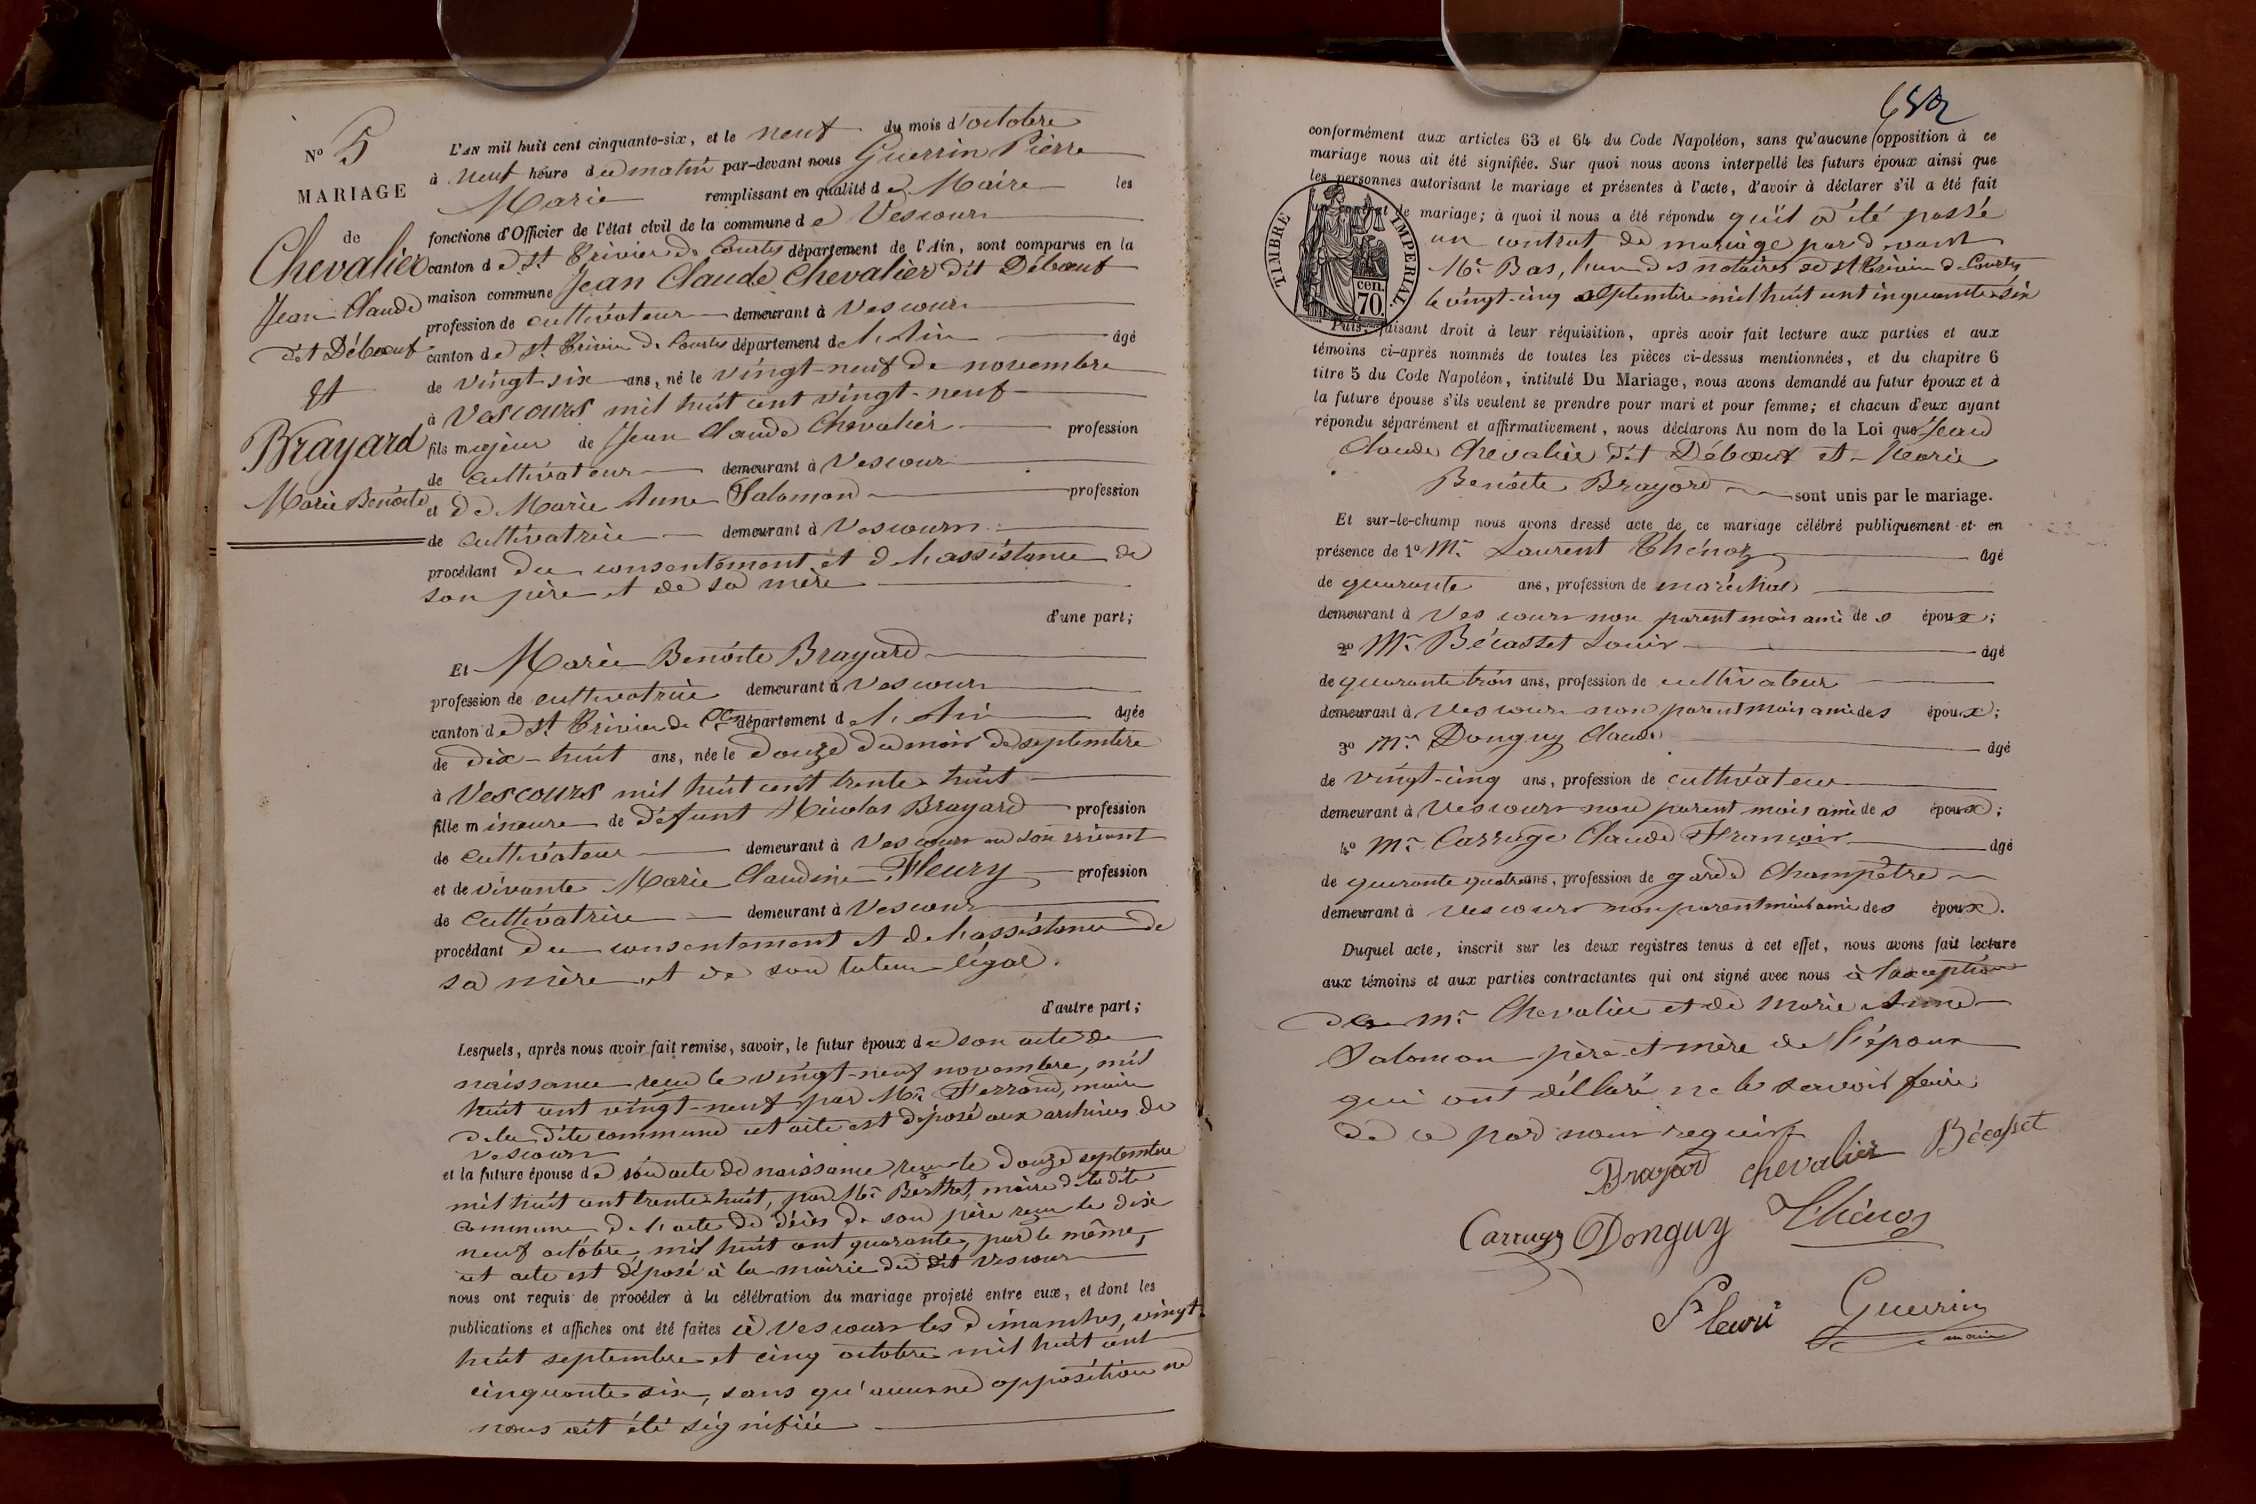 N° 5
MARIAGE
de
Chevalier
Jean Claude
dit Débœuf
Et
Brayard
Marie Benoite
L'AN mil huit cent cinquante-six, et le neuf du mois d'octobre
à neuf heure du matin par-devant nous Guerrin Pierre
Marie remplissant en qualité de Maire les
fonctions d'Officier de l'état civil de la commune de Vescours
canton de St Trivier de Courtes département de l'Ain, sont comparus en la
maison commune Jean Claude Chevalier dit Débœuf
profession de cultivateur demeurant à Vescours
canton de St Trivier de Courtes département de l'Ain âgé
de vingt-six ans, né le vingt-neuf de novembre
à Vescours mil huit cent vingt-neuf
fils majeur de Jean Claude Chevalier profession
de cultivateur demeurant à Vescours
et de Marie Anne Salomon profession
de cultivatrice demeurant à Vescours
procédant du consentement et de l'assistance de
son père et de sa mère
d'une part;
Et Marie Benoite Brayard
profession de cultivatrice demeurant à Vescours
canton de St Trivier de Ctes département de l'Ain âgée
de dix-huit ans, née le douze du mois de septembre
à Vescours mil huit cent trente huit
fille mineure de défunt Nicolas Brayard profession
de cultivateur demeurant à Vescours en son vivant
et de vivante Marie Claudine Fleury profession
de cultivatrice demeurant à Vescours
procédant du consentement et de l'assistance de
sa mère et de son tuteur légal.
d'autre part;
Lesquels, après nous avoir fait remise, savoir, le futur époux de son acte de
naissance reçu le vingt-neuf novembre, mil
huit cent vingt-neuf par Mr Ferrand, maire
de la dite commune cet acte est déposé aux archives de
Vescours
et la future épouse de son acte de naissance reçu le douze septembre
mil huit cent trente huit, par Mr Berthet, maire de la dite
commune de l'acte de décès de son père reçu le dix
neuf octobre, mil huit cent quarante, par le même,
cet acte est déposé à la mairie du dit Vescours
nous ont requis de procéder à la célébration du mariage projeté entre eux, et dont les
publications et affiches ont été faites à Vescours les dimanches, vingt-
huit septembre et cinq octobre mil huit cent
cinquante six, sans qu'aucune opposition ne
nous ait été signifiée
652
conformément aux articles 63 et 64 du Code Napoléon, sans qu'aucune opposition à ce
mariage nous ait été signifiée. Sur quoi nous avons interpellé les futurs époux ainsi que
les personnes autorisant le mariage et présentes à l'acte, d'avoir à déclarer s'il a été fait
un contrat de mariage; à quoi il nous a été répondu qu'il a été passé
un contrat de mariage par devant
Mr Bas, l'un des notaires de St Trivier de Courtes
le vingt-cinq septembre mil huit cent cinquante six
TIMBRE IMPERIAL.
cen.
70.
Puis, faisant droit à leur réquisition, après avoir fait lecture aux parties et aux
témoins ci-après nommés de toutes les pièces ci-dessus mentionnées, et du chapitre 6
titre 5 du Code Napoléon, intitulé Du Mariage, nous avons demandé au futur époux et à
la future épouse s'ils veulent se prendre pour mari et pour femme; et chacun d'eux ayant
répondu séparément et affirmativement, nous déclarons Au nom de la Loi que Jean
Claude Chevalier dit Débœuf et Marie
Benoite Brayard sont unis par le mariage.
Et sur-le-champ nous avons dressé acte de ce mariage célébré publiquement et en
présence de 1° Mr Laurent Thénoz âgé
de quarante ans, profession de maréchal
demeurant à Vescours non parent mais ami des époux;
2° Mr Bécasset Louis âgé
de quarante trois ans, profession de cultivateur
demeurant à Vescours non parent mais ami des époux;
3° Mr Donguy Claude âgé
de vingt-cinq ans, profession de cultivateur
demeurant à Vescours non parent mais ami des époux;
4° Mr Carruge Claude François âgé
de quarante quatre ans, profession de garde Champêtre
demeurant à Vescours non parent mais ami des époux.
Duquel acte, inscrit sur les deux registres tenus à cet effet, nous avons fait lecture
aux témoins et aux parties contractantes qui ont signé avec nous à l'exception
de Mr Chevalier et de Marie Anne
Salomon père et mère de l'époux
qui ont déclaré ne le savoir faire
de ce par nous requis
Brayard chevalier Bécasset
Carruge Donguy Thénoz
Fleuri Guerrin
maire